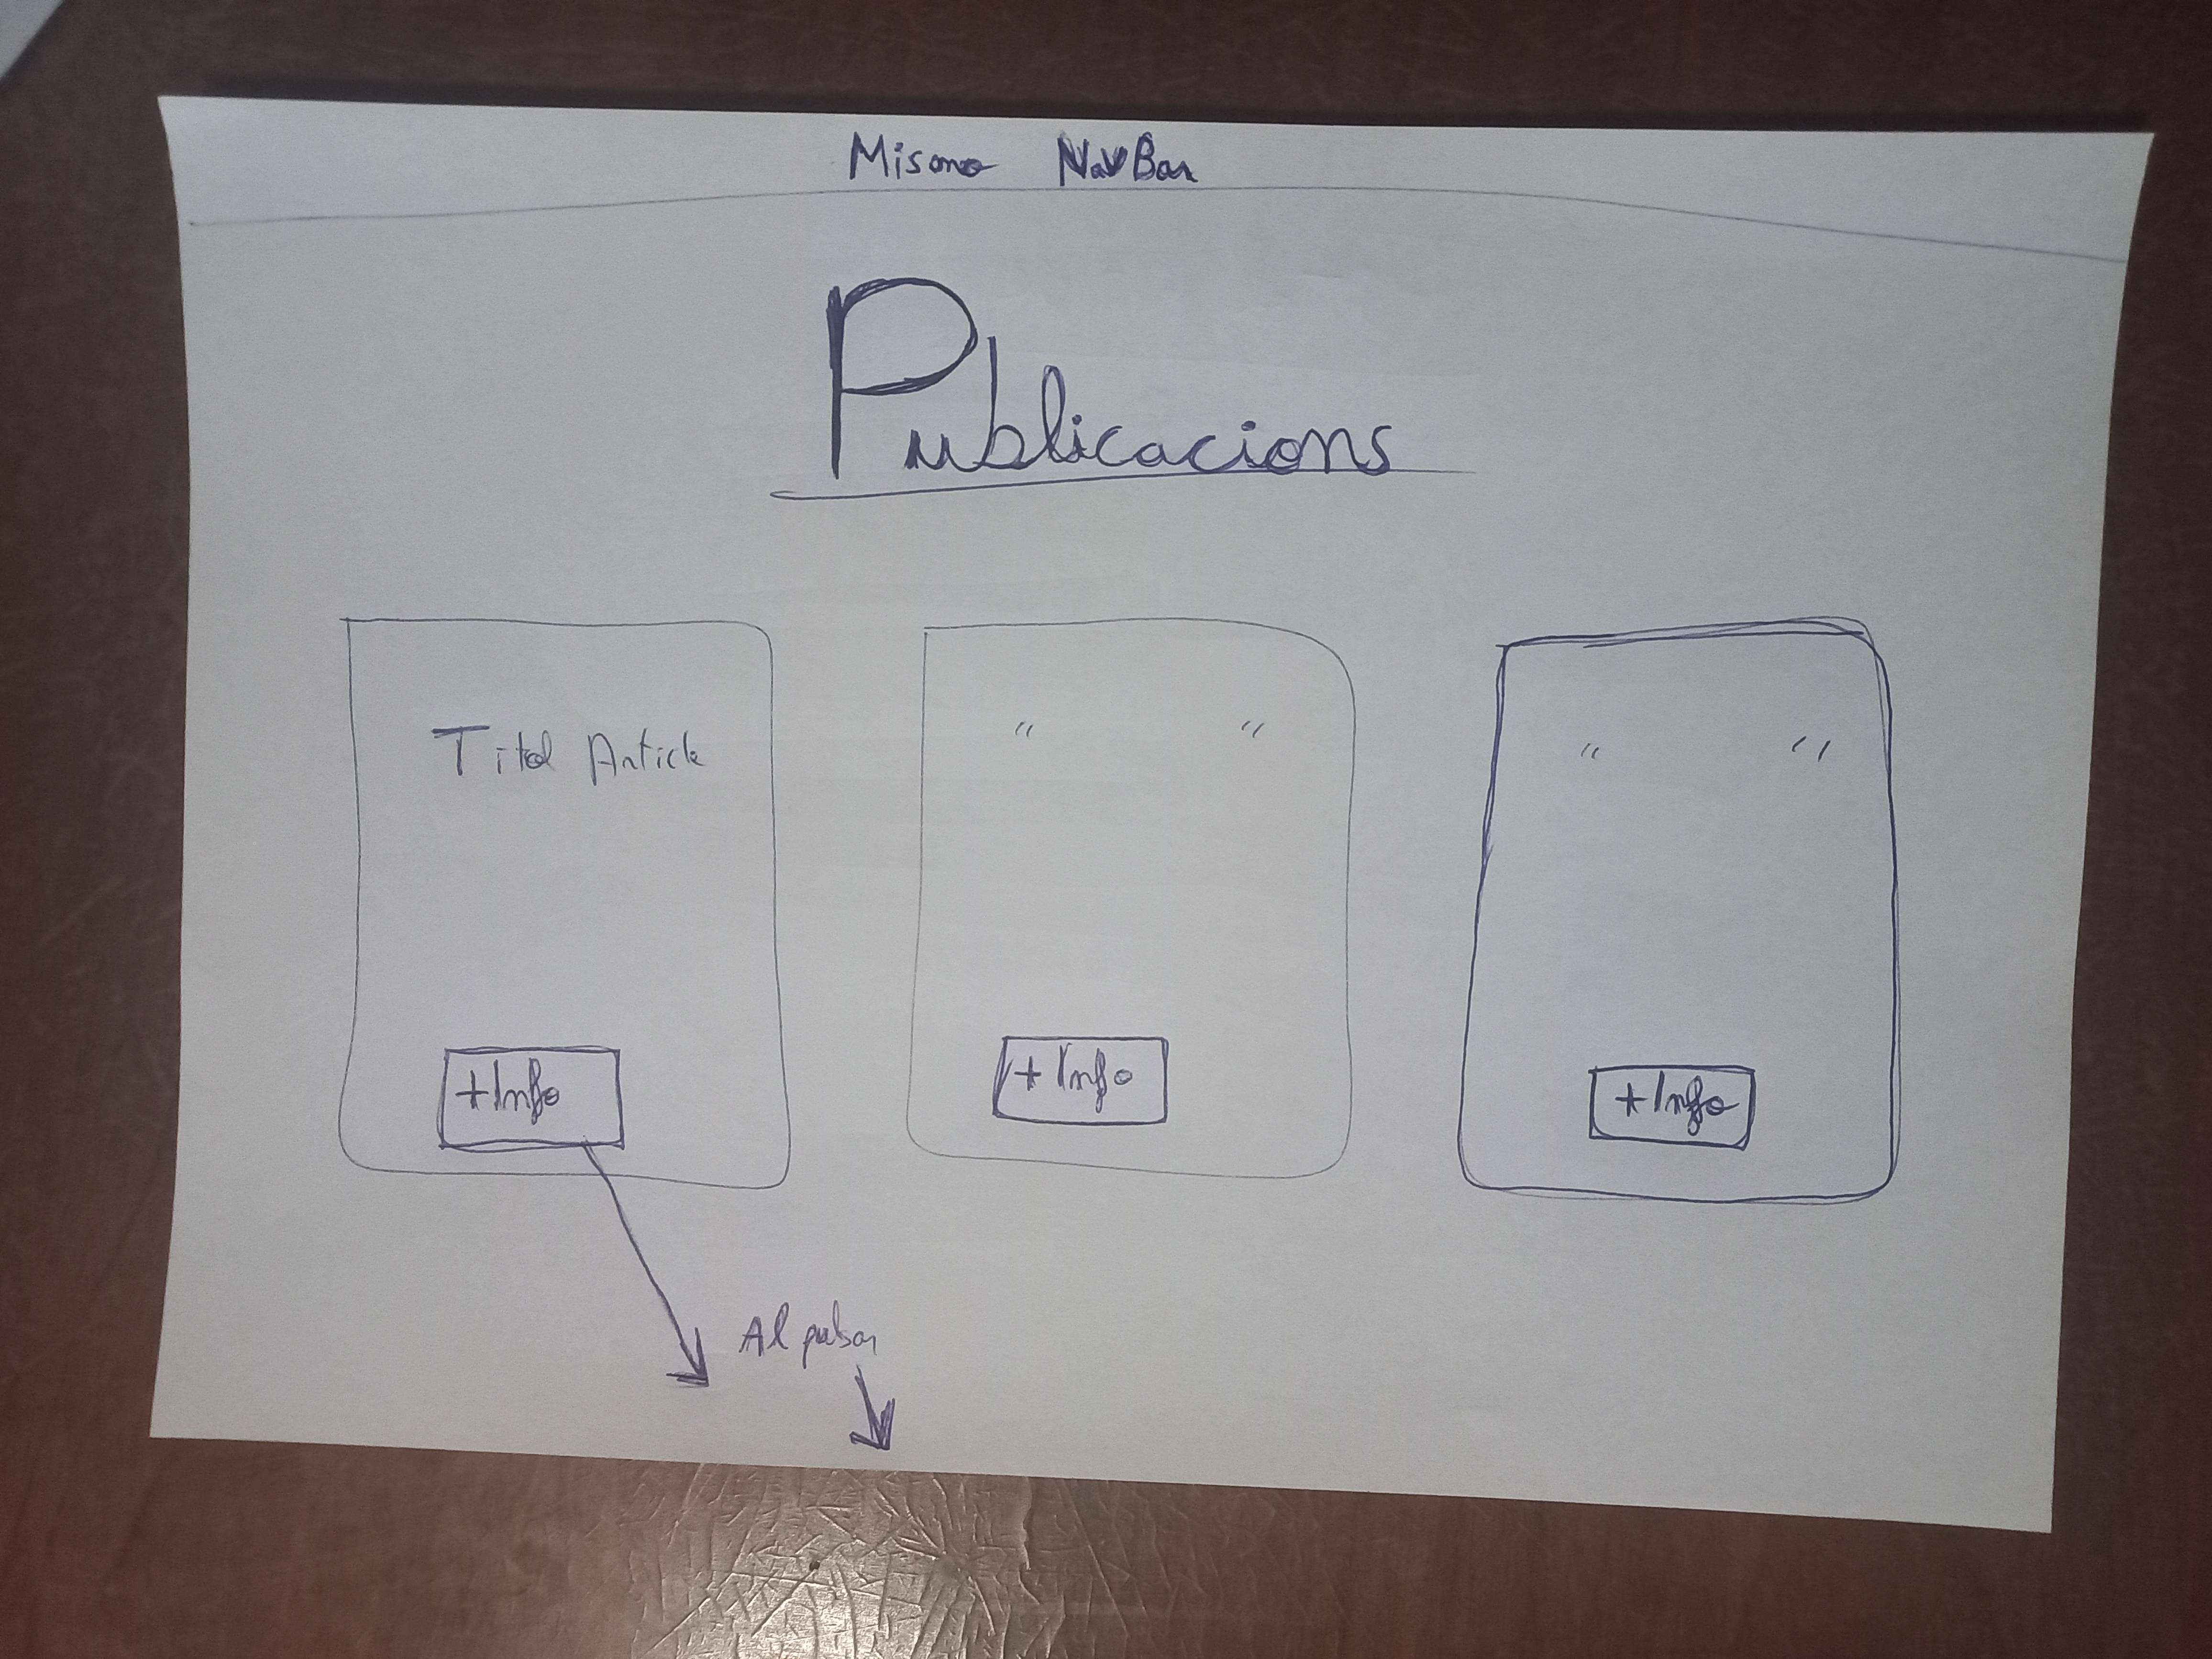 Mismo NavBar
Publicacions
Titol Article
" "
" "
+Info
+Info
+Info
Al pulsar